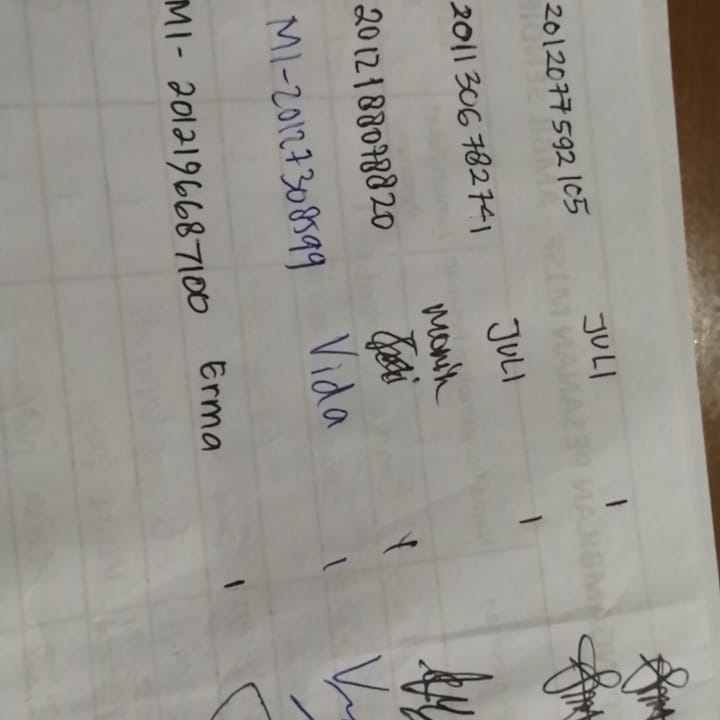 2012077592105 JULI 1
2011306782741 JULI 1
2012188078820 Monik
MI-20127308599 Vida 1
MI-2012196687100 Erma 1